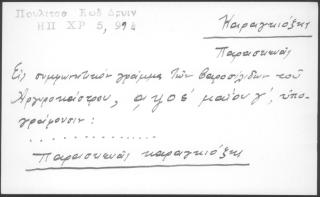 Πουλίτσα Κωδ Δρυιν
ΗΠ ΧΡ 5, 974
Καραγκιόζης
Παρασκευᾶς
Εἰς συμφωνητικὸν γράμμα τῶν Βαροσλίδων τοῦ
Ἀργυροκάστρου, αψοέ μαΐου γ΄, ὑπο-
γράφουσιν:
. . . . . . . . . . . . . . .
Παρασκευᾶς καραγκιόζης